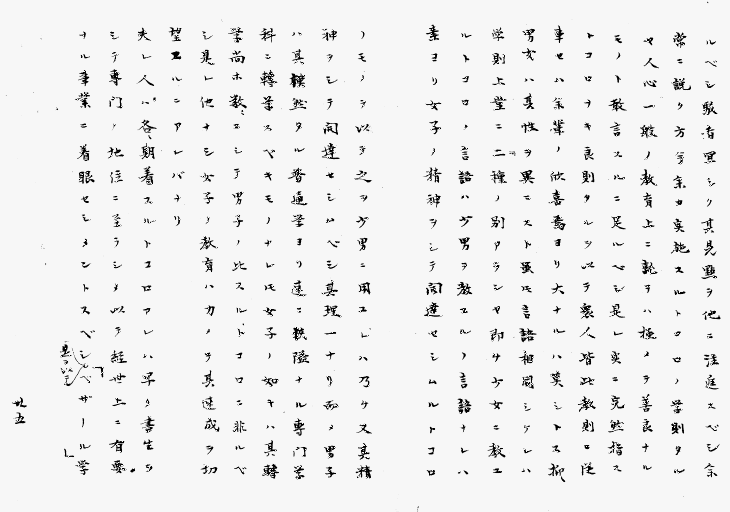 ルベシ敢者冥シク其見點ヲ他ニ注庭スベシ余
常ニ説ク方今余カ実施スルトコロノ学則タル
ヤ人心一般ノ教育上ニ就テハ極メテ善良ナル
モノト敢言スルニ足ルベシ是レ実ニ完然指ス
トコロナキ良則タルヲ以テ衆人皆此教則ニ従
事セハ余輩ノ欣喜焉ヨリ大ナルハ莫シトス抑
男女ハ其性ヲ異ニスト雖モ言語相同シケレハ
学則上豈ニ二種ノ別アラシヤ即チ少女ニ教ユ
ルトコロノ言語ハ少男ヲ教ユルノ言語ナレハ
素ヨリ女子ノ精神ヲシテ開達セシムルトコロ
ノモノヲ以テ之ヲ少男ニ用ユレハ乃チ又其精
神ヲシテ開達セシムベシ真理一ナリ而メ男子
ハ其模然タル普通学ヨリ速ニ狭隘ナル専門学
科ニ轉学スベキモノナレ圧女子ノ如キハ其轉
学尚ホ数々ニシテ男子ノ比スルトコロニ非ルベ
シ是レ他ナシ女子ノ教育ハカメテ其速成ヲ切
望スルニアレバナリ
夫レ人ハ各〻期着スルトコロアレハ早ク書生ヲ
シテ専門ノ地位ニ至ラシメ以テ経世上ニ有要
ナル事業ニ着眼セシメントスベシ「ペザール学
廿五